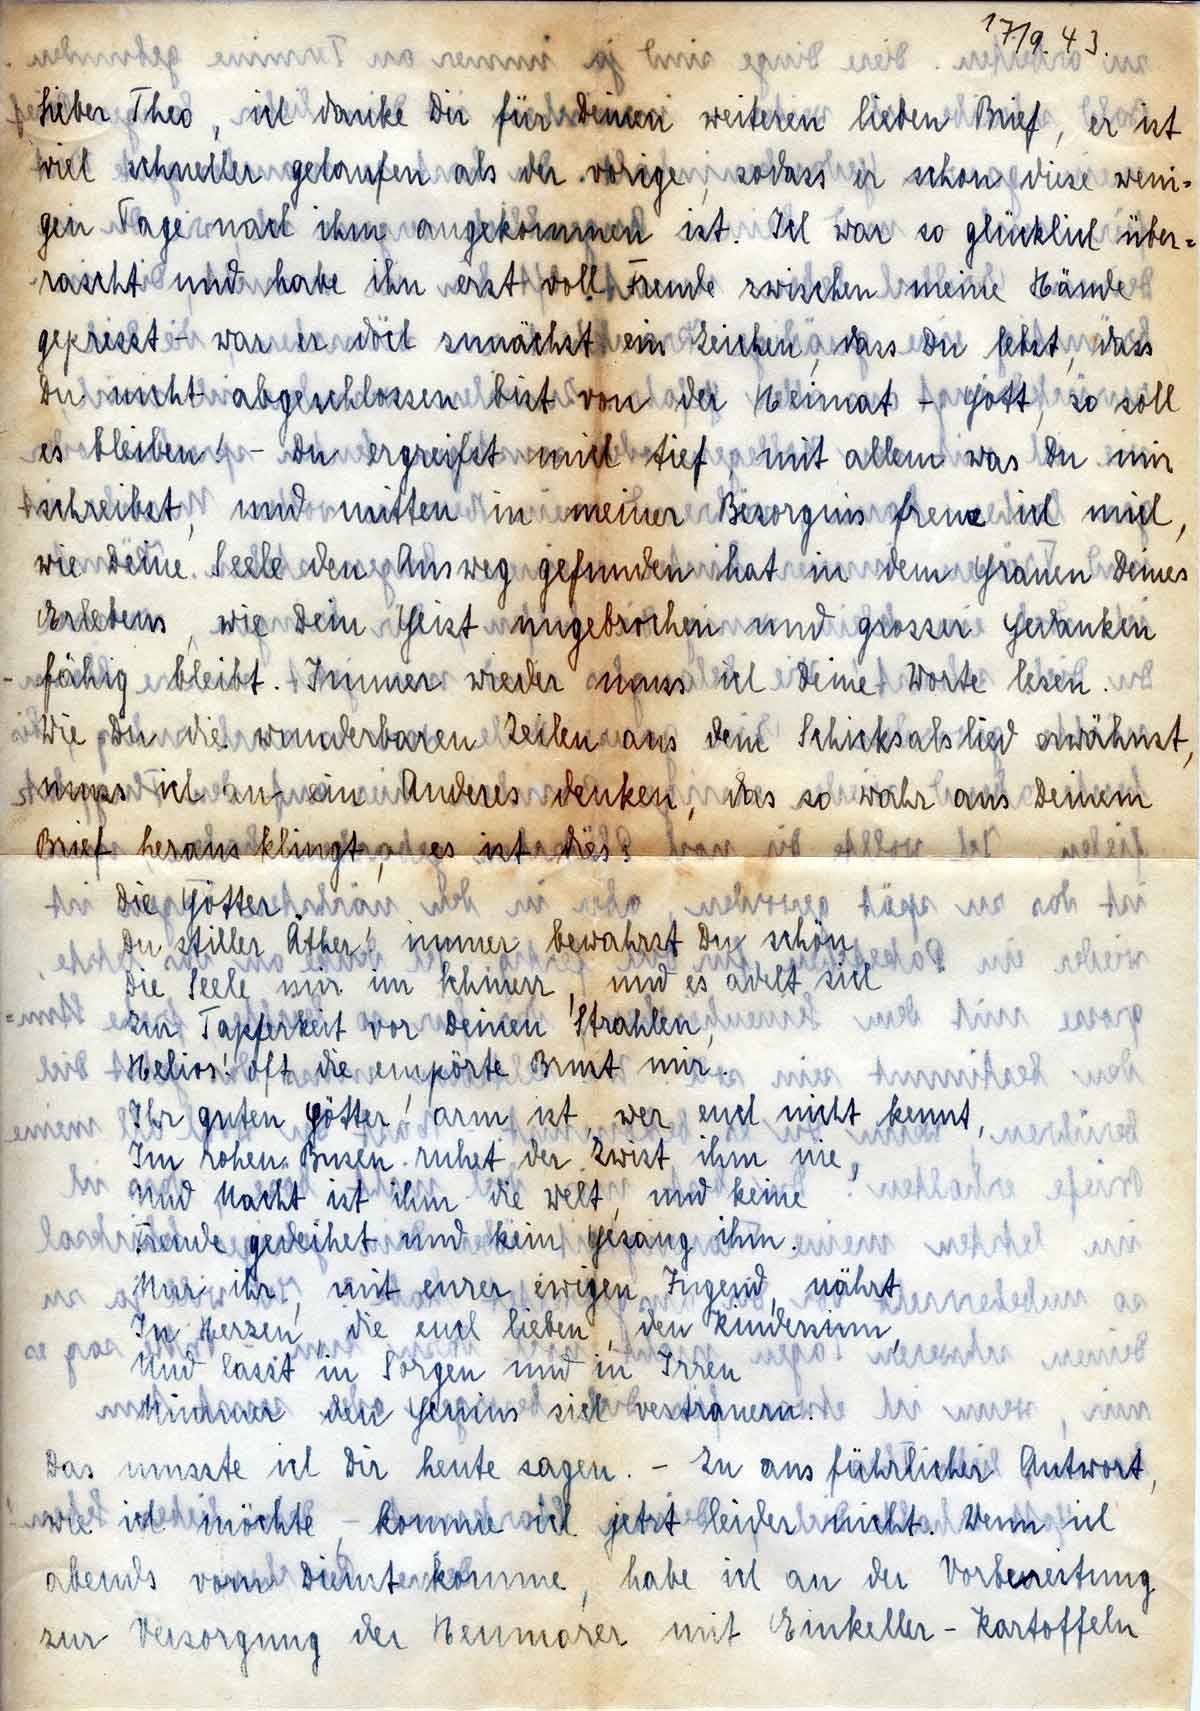 17/9.43.
Lieber Theo, ich danke Dir für Deinen weiteren lieben Brief, er ist
viel schneller gelaufen als der vorige, sodass er schon diese weni=
gen Tage nach ihm angekommen ist. Ich war so glücklich über=
rascht und habe ihn erst voll Freude zwischen meine Hände
gepresst - war er doch zunächst ein Zeichen, dass Du lebst, dass
Du nicht abgeschlossen bist von der Heimat - Gott, so soll
es bleiben! - Du ergreifst mich tief, mit allem was Du mir
schreibst, und mitten in meiner Besorgnis freue ich mich,
wie Deine Seele den Ausweg gefunden hat in dem Grauen Deines
Erlebens, wie Dein Geist ungebrochen und grosser Gedanken
fähig bleibt. Immer wieder muss ich Deine Worte lesen.
Wie Du die wunderbaren Zeilen aus dem Schicksalslied erwähnst,
muss ich an ein Anderes denken, das so wahr aus Deinem
Brief heraus klingt, es ist dies:
Die Götter.
Du stiller Äther! immer bewahrst Du schön
Die Seele mir im Schmerz, und es adelt sich
Zur Tapferkeit vor Deinen Strahlen,
Helios! oft die empörte Brust mir.
Ihr guten Götter! arm ist, wer euch nicht kennt,
Im rohen Busen ruhet der Zwist ihm nie,
Und Nacht ist ihm die Welt, und keine
Freude gedeihet und kein Gesang ihm.
Nur ihr, mit eurer ewigen Jugend, nährt
In Herzen, die euch lieben, den Kindersinn,
Und lasst in Sorgen und in Irren
Nimmer den Genius sich vertrauern.
Das musste ich Dir heute sagen. - Zu ausführlicher Antwort,
wie ich möchte, komme ich jetzt leider nicht. Wenn ich
abends vom Dienst komme, habe ich an der Vorbereitung
zur Versorgung der mit Einkeller-Kartoffeln